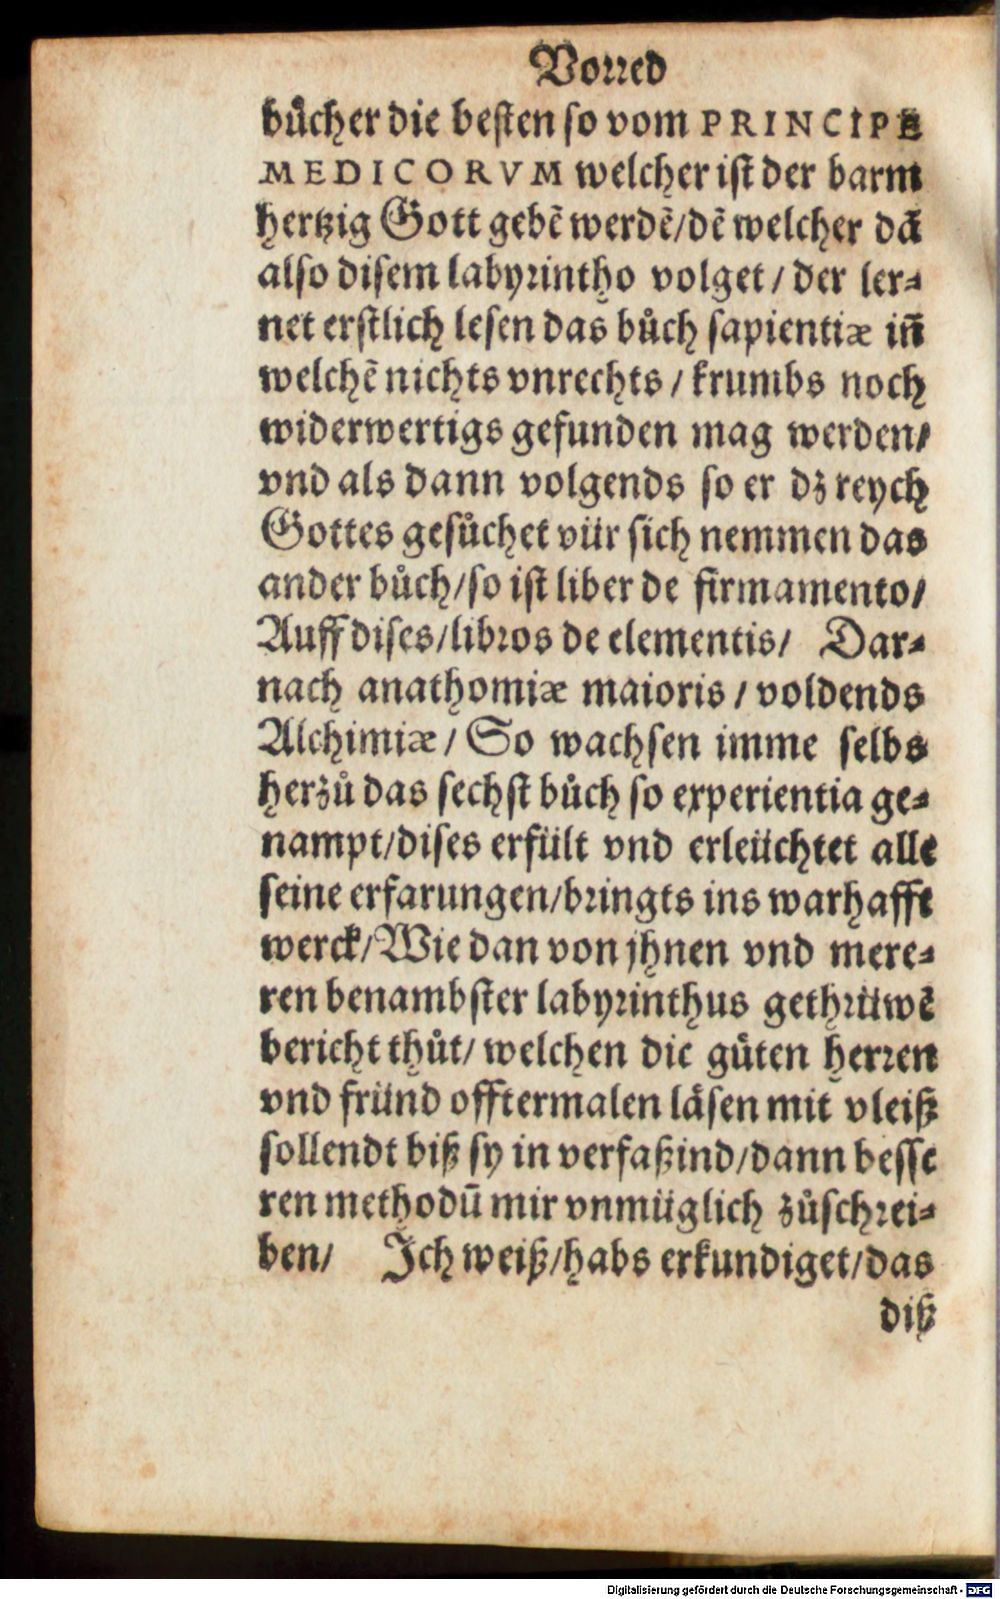 Vorred
bůcher die besten so vom PRINCIPE
MEDICORVM welcher ist der barm
hertzig Gott gebẽ werdẽ/dẽ welcher dã
also disem labyrintho volget / der ler⸗
net erstlich lesen das bůch sapientiæ in̄
welchẽ nichts vnrechts / krumbs noch
widerwertigs gefunden mag werden/
vnd als dann volgends so er dz reych
Gottes gesůchet vür sich nemmen das
ander bůch/so ist liber de firmamento/
Auff dises/libros de elementis/ Dar⸗
nach anathomiæ maioris / voldends
Alchimiæ / So wachsen imme selbs
herzů das sechst bůch so experientia ge⸗
nampt/dises erfült vnd erleüchtet alle
seine erfarungen/bringts ins warhafft
werck/Wie dan von jhnen vnd mere⸗
ren benambster labyrinthus gethrüwẽ
bericht thůt/ welchen die gůten herren
vnd fründ offtermalen läsen mit vleiß
sollendt biß sy in verfaßind/dann besse
ren methodū mir vnmüglich zůschrei⸗
ben/ Ich weiß/habs erkundiget/das
diß
Digitalisierung gefördert durch die Deutsche Forschungsgemeinschaft - DFG